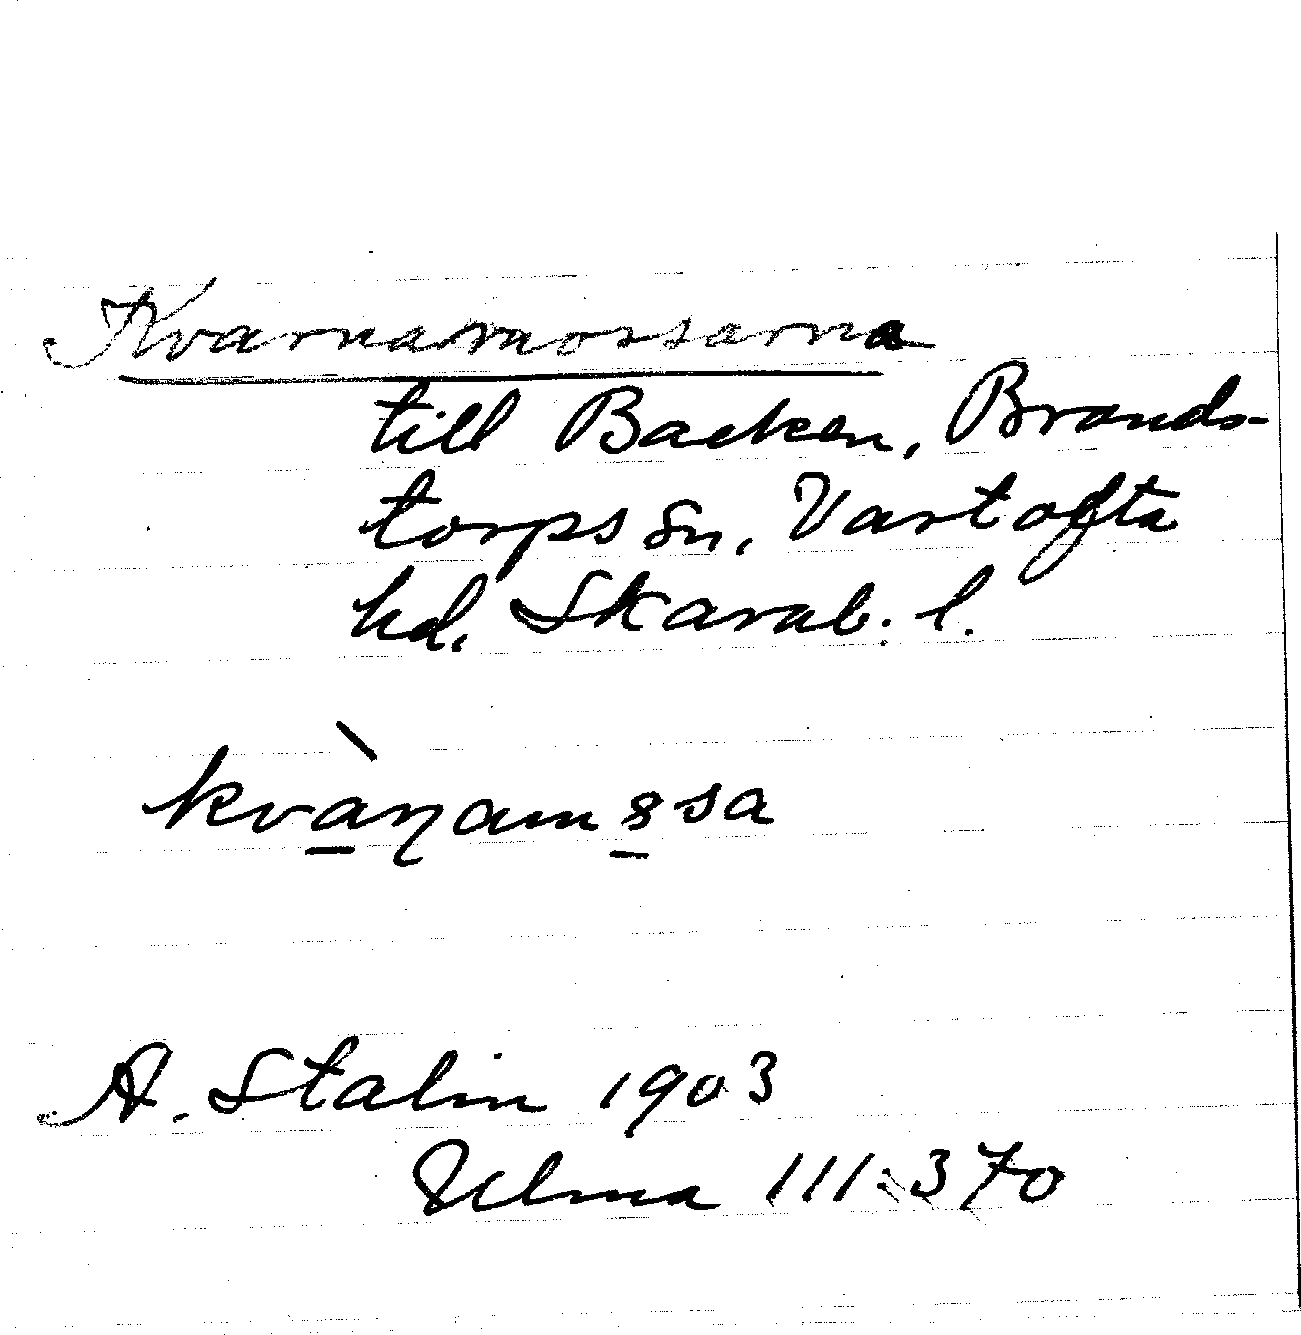 Kvarnamossarna
till Backen, Brands-
torps sn, Vartofta
hd. Skarab. l.
kvàɳam8sa
A. Stalin 1903
Ulma 111:370